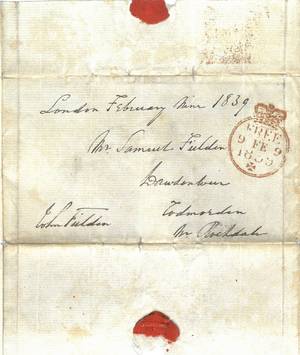 London February Nine 1839
FREE
9 FE 9
1839
Mr Samuel Fielden
Todmorden
John Fielden
Nr Rochdale